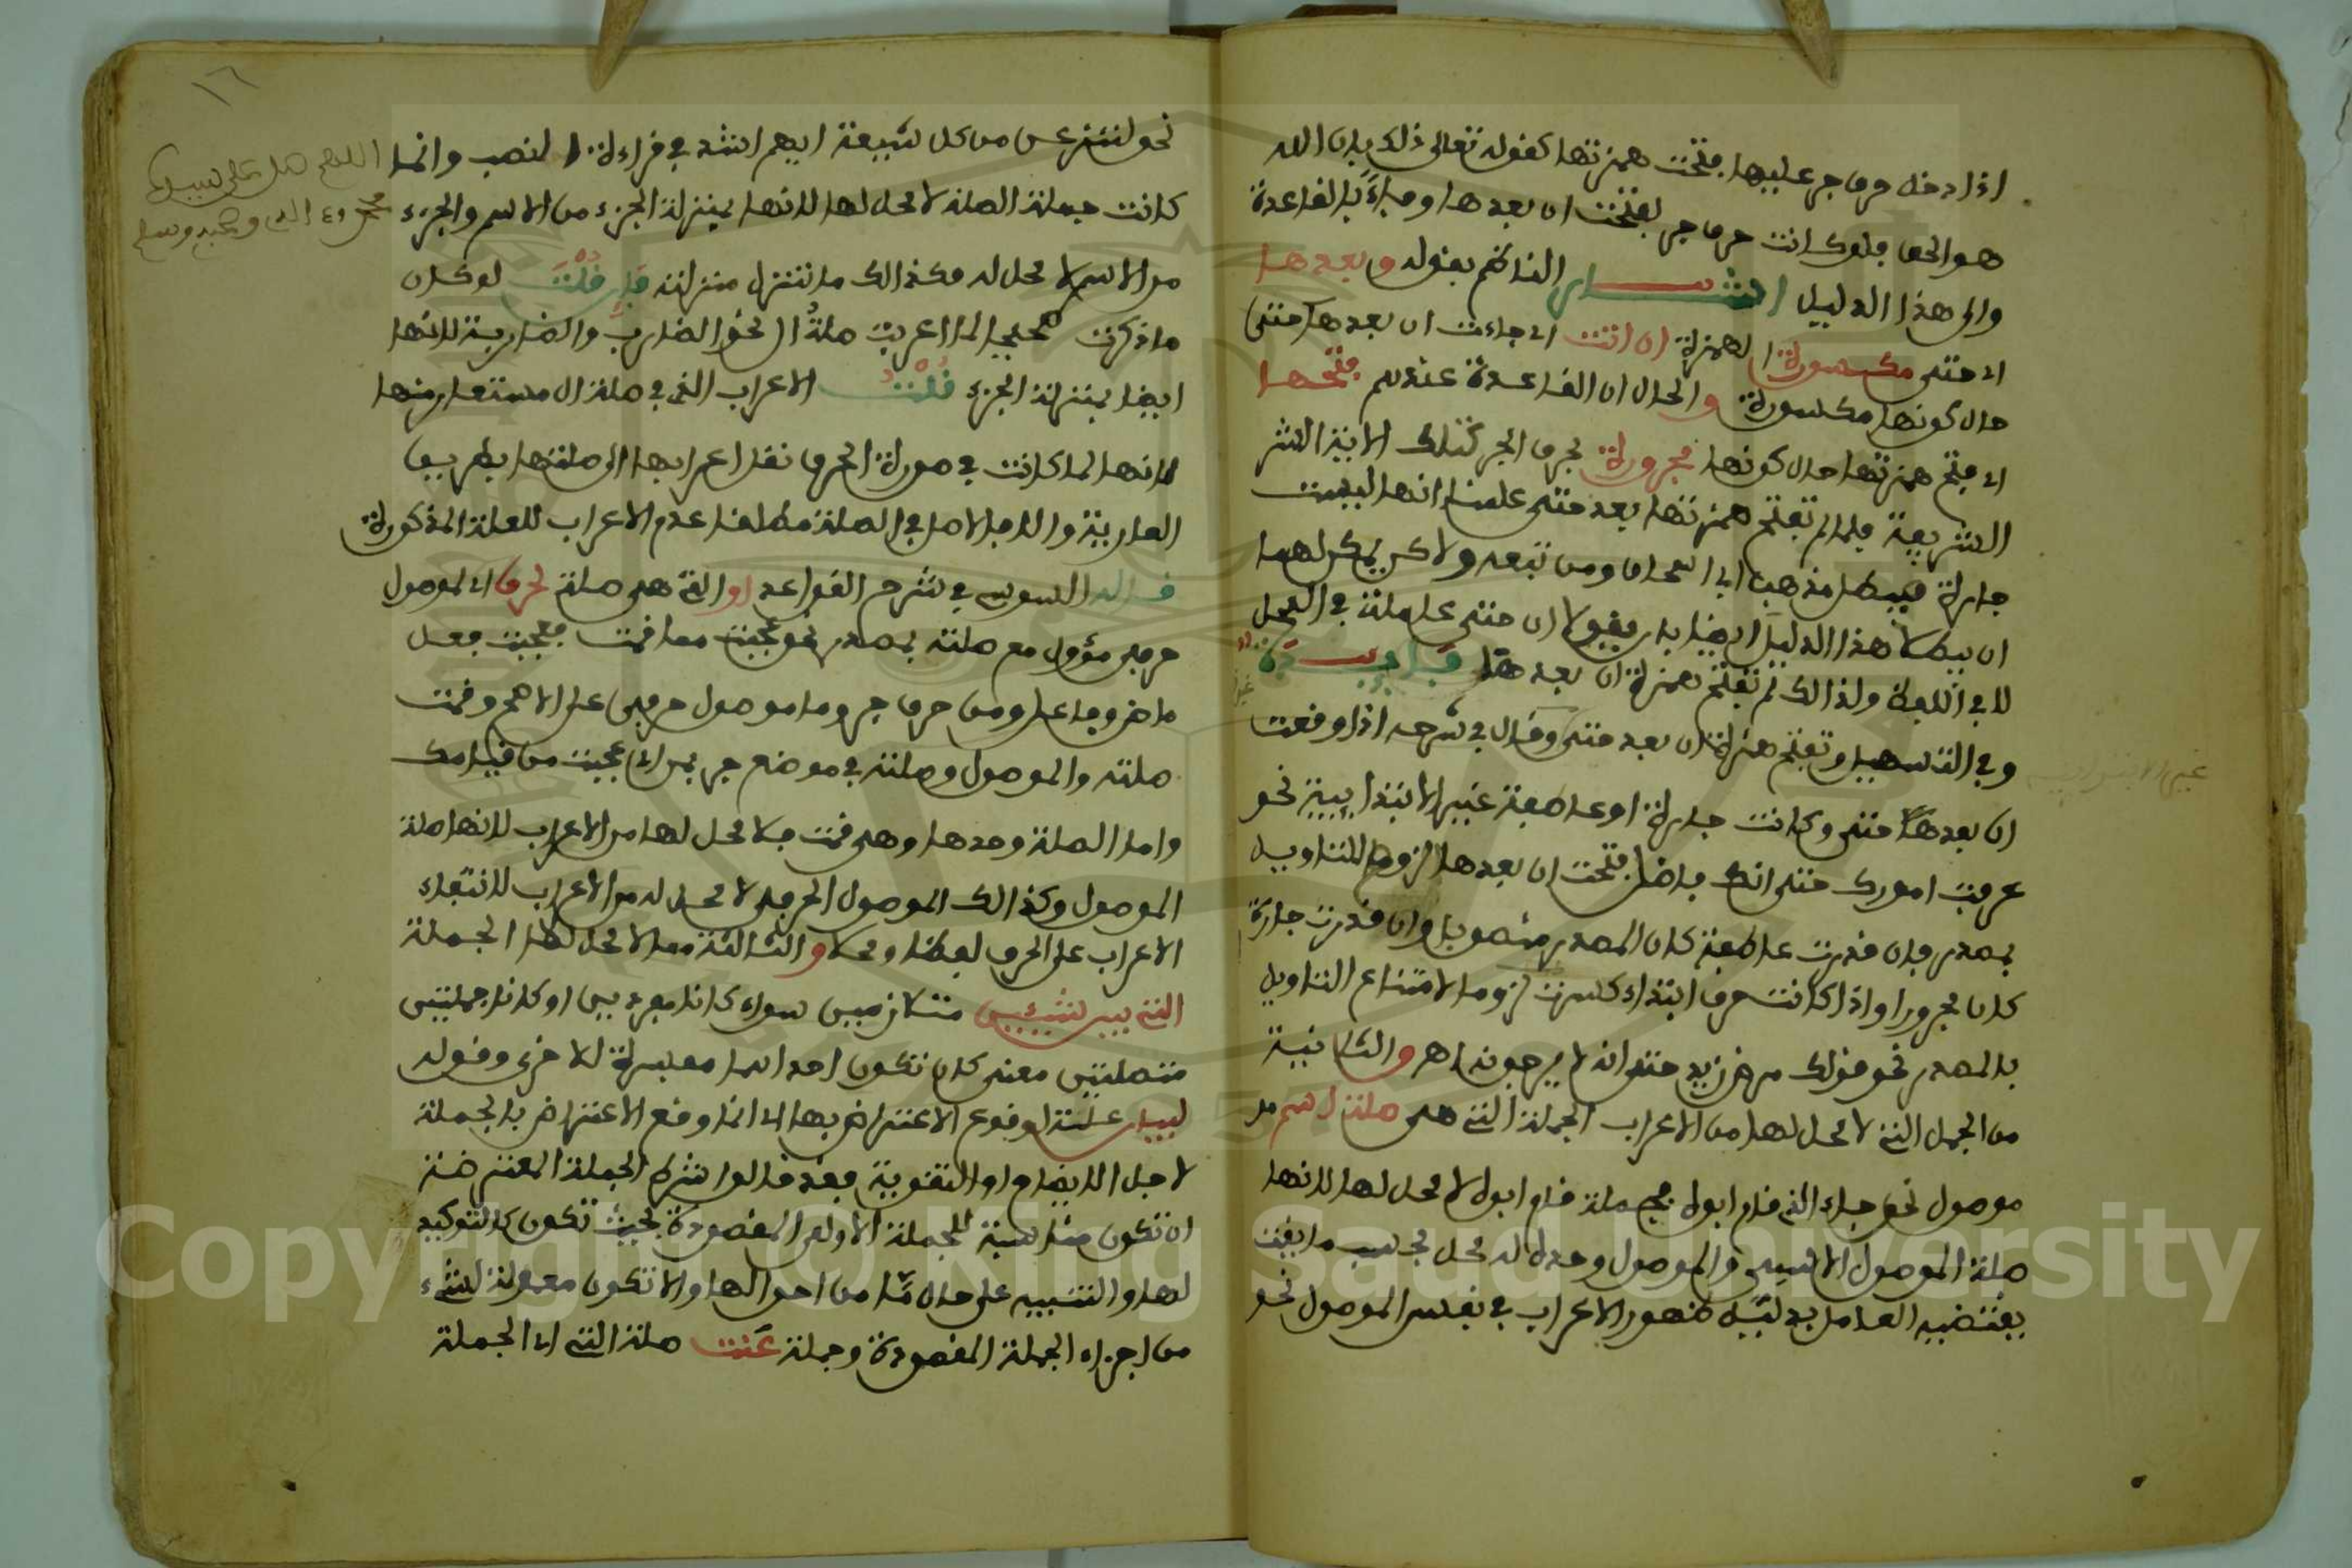 اذا دخل حرف جر عليها فتحت همزتها كقوله تعالى ذلك بان الله
هو الحق فلو كانت حرف جر لفتحت ان بعدها وفاءً بالقاعدة
والى هذا الدليل اشار الناظم بقوله وبعدها
اى حتى مكسورة الهمزة ان اتت اى جاءت ان بعدها حتى
حال كونها مكسورة والحال ان القاعدة عندهم فتحها
اى فتح همزتها حال كونها مجرورة بحرف الجر كتلك الاية الشر
الشريفة فلما لم تفتح همزتها بعد حتى علمنا انها ليست
جارة فبطل مذهب ابى اسحاق ومن تبعه ولاكن يمكن لهما
ان يبطلا هذا الدليل ايضا بان يقولا ان حتى عاملة في المحل
لا في اللفظ ولذالك لم تفتح همزة ان بعد حتى فايدة
وفي التسهيل وتفتح همزة ان بعد حتى وقال في شرحه اذا وقعت
ان بعدها حتى وكانت جارة او عاطفة غير الابتدايية نحو
عرفت امورك حتى انك فاضل فتحت ان بعدها لزوما للتاويل
بمصدر فان قدرت عاطفة كان المصدر منصوبا وان قدرت جارة
كان مجرورا واذا كانت حرف ابتداء كسرت لزوما لامتناع التاويل
بالمصدر نحو قولك مرض زيد حتى انه لا يرجونه اهـ والثانية
من الجمل التى لا محل لها من الاعراب الجملة التى هى صلة اسم
موصول نحو جاء الذى قام ابوه فجملة قام ابوه لا محل لها لانها
صلة الموصول الاسمى والموصول وحده له محل بحسب ما يقت
يقتضيه العامل بدليل ظهور الاعراب في نفس الموصول نحو
غير الابتدايية
١٦
نحو لننزعن من كل شيعة ايهم اشد في قراءة النصب وانما
كانت جملة الصلة لا محل لها لانها بمنزلة الجزء من الاسم والجزء
من الاسم لا محل له فكذالك ما تنزل منزلته فان قلت لو كان
ما ذكرت صحيحا لما اعربت صلة ال نحو الضارب والضاربة لانها
ايضا بمنزلة الجزء قلت الاعراب الذى في صلة ال مستعار منها
لانها لما كانت في صورة الحرف نقل اعرابها الى صلتها بطريق
العارية والا فالاصل في الصلة مطلقا عدم الاعراب للعلة المذكورة
قاله السوسي في شرح القواعد او التى هى صلة لحرف اى لموصول
حرفى مؤول مع صلته بمصدر نحو عجبت مما قمت فعجبت فعل
ماض وفاعل ومن حرف جر وما موصول حرفى على الاصح وقمت
صلته والموصول وصلته في موضع جر بمن اى عجبت من قيامك
واما الصلة وحدها وهى قمت فلا محل لها من الاعراب لانها صلة
الموصول وكذالك الموصول الحرفى لا محل له من الاعراب لانتفاء
الاعراب على الحرف لفظا ومحلا والثالثة مما لا محل لها الجملة
التى بين شيئين متلازمين سواء كانا مفردين او كانا جملتين
متصلتين معنى كان تكون احداهما مفسرة للاخرى وقوله
لبيان علة لوقوع الاعتراض بها اى انما وقع الاعتراض بالجملة
لاجل الايضاح او التقوية فقد قالوا شرط الجملة المعترضة
ان تكون مناسبة للجملة الاولى المقصودة بحيث تكون كالتوكيد
لها والتنبيه على حال ما من احوالها والا تكون معمولة لشىء
من اجزاء الجملة المقصودة وجملة عنت صلة التى اى الجملة
اللهم صل على سيدنا
محمد وءاله وصحبه وسلم
Copyright © King Saud University